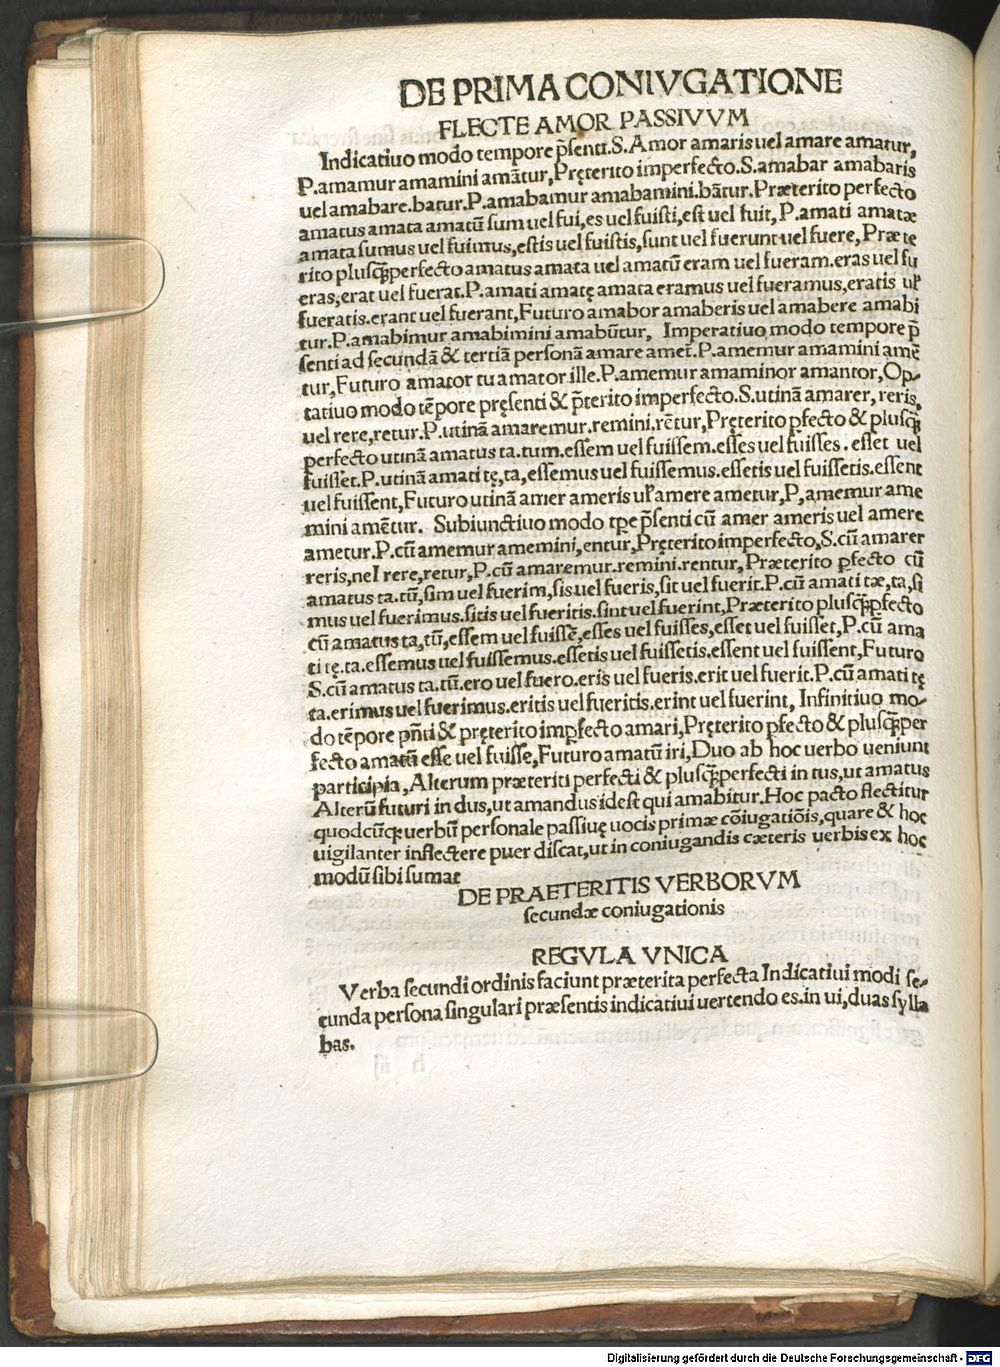 DE PRIMA CONIVGATIONE
FLECTE AMOR PASSIVVM
Indicatiuo modo tempore p̄senti.S.Amor amaris uel amare amatur,
P.amamur amamini amãtur,Pręterito imperfecto.S.amabar amabaris
uel amabare.batur.P.amabamur amabamini.bãtur.Præterito perfecto
amatus amata amatũ sum uel fui,es uel fuisti,est uel fuit,P.amati amatæ
amata sumus uel fuimus,estis uel fuistis,sunt uel fuerunt uel fuere,Præte
rito plusq̃perfecto amatus amata uel amatũ eram uel fueram.eras uel fu
eras,erat uel fuerat.P.amati amatę amata eramus uel fueramus,eratis uł
fueratis.erant uel fuerant,Futuro amabor amaberis uel amabere amabi
tur.P.amabimur amabimini amabũtur, Imperatiuo modo tempore p̄
senti ad secundã & tertiã personã amare amet.P.amemur amamini amẽ
tur,Futuro amator tu amator ille.P.amemur amaminor amantor,Op-
tatiuo modo tẽpore pręsenti & p̄terito imperfecto.S.utinã amarer,reris,
uel rere,retur.P.utinã amaremur.remini.rẽtur,Pręterito ꝑfecto & plusq̃
perfecto utinã amatus ta.tum.essem uel fuissem.esses uel fuisses.esset uel
fuisset.P.utinã amati tę,ta,essemus uel fuissemus.essetis uel fuissetis.essent
uel fuissent,Futuro utinã amer ameris uł amere ametur,P,amemur ame
mini amẽtur. Subiunctiuo modo tꝑe p̄senti cũ amer ameris uel amere
ametur.P.cũ amemur amemini,entur,Pręterito imperfecto,S.cũ amarer
reris,nel rere,retur,P.cũ amaremur.remini.rentur,Præterito ꝑfecto cũ
amatus ta.tũ,sim uel fuerim,sis uel fueris,sit uel fuerit.P.cũ amati tæ,ta,si
mus uel fuerimus.sitis uel fueritis.sint uel fuerint,Præterito plusq̃ꝑfecto
cũ amatus ta,tũ,essem uel fuissẽ,esses uel fuisses,esset uel fuisset,P.cũ ama
ti tę.ta.essemus uel fuissemus.essetis uel fuissetis.essent uel fuissent,Futuro
S.cũ amatus ta.tũ.ero uel fuero.eris uel fueris.erit uel fuerit.P.cũ amati tę
ta.erimus uel fuerimus.eritis uel fueritis.erint uel fuerint, Infinitiuo mo-
do tẽpore pñti & pręterito imꝑfecto amari,Pręterito ꝑfecto & plusq̃per
fecto amatũ esse uel fuisse,Futuro amatũ iri,Duo ab hoc uerbo ueniunt
participia,Alterum præteriti perfecti & plusq̃perfecti in tus,ut amatus
Alterũ futuri in dus,ut amandus idest qui amabitur.Hoc pacto flectitur
quodcũq; uerbũ personale passiuę uocis primæ cõiugatiõis,quare & hoc
uigilanter inflectere puer discat,ut in coniugandis cæteris uerbis ex hoc
modũ sibi sumat
DE PRAETERITIS VERBORVM
secundæ coniugationis
REGVLA VNICA
Verba secundi ordinis faciunt præterita perfecta Indicatiui modi se-
cunda persona singulari præsentis indicatiui uertendo es.in ui,duas sylla
bas.
Digitalisierung gefördert durch die Deutsche Forschungsgemeinschaft - DFG